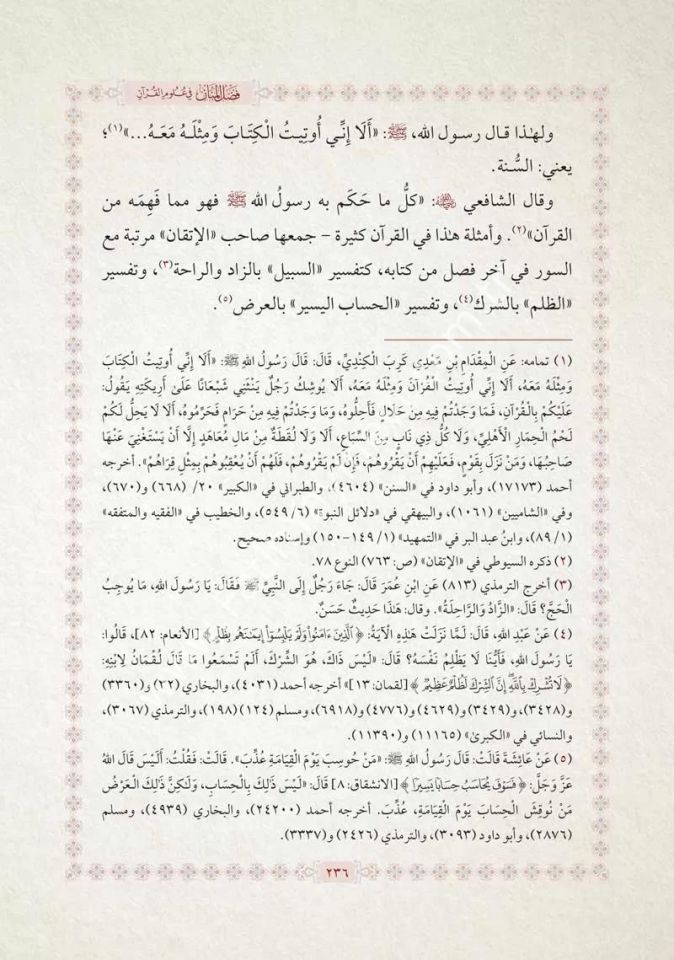 فضل المنان في علوم القرآن
ولهٰذا قال رسول الله، ﷺ: «أَلَا إِنِّي أُوتِيتُ الْكِتَابَ وَمِثْلَهُ مَعَهُ...»(١)؛
يعني: السُّنة.
وقال الشافعي ﵀: «كلُّ ما حَكَم به رسولُ الله ﷺ فهو مما فَهِمَه من
القرآن»(٢). وأمثلة هٰذا في القرآن كثيرة – جمعها صاحب «الإتقان» مرتبة مع
السور في آخر فصل من كتابه، كتفسير «السبيل» بالزاد والراحة(٣)، وتفسير
«الظلم» بالشرك(٤)، وتفسير «الحساب اليسير» بالعرض(٥).
(١) تمامه: عَنِ المِقْدَامِ بْنِ مَعْدِي كَرِبَ الْكِنْدِيِّ، قَالَ: قَالَ رَسُولُ اللهِ ﷺ: «أَلَا إِنِّي أُوتِيتُ الْكِتَابَ
وَمِثْلَهُ مَعَهُ، أَلَا إِنِّي أُوتِيتُ الْقُرْآنَ وَمِثْلَهُ مَعَهُ، أَلَا يُوشِكُ رَجُلٌ يَنْثَنِي شَبْعَانًا عَلَىٰ أَرِيكَتِهِ يَقُولُ:
عَلَيْكُمْ بِالْقُرْآنِ، فَمَا وَجَدْتُمْ فِيهِ مِنْ حَلَالٍ فَأَحِلُّوهُ، وَمَا وَجَدْتُمْ فِيهِ مِنْ حَرَامٍ فَحَرِّمُوهُ، أَلَا لَا يَحِلُّ لَكُمْ
لَحْمُ الْحِمَارِ الْأَهْلِيِّ، وَلَا كُلُّ ذِي نَابٍ مِنَ السِّبَاعِ، أَلَا وَلَا لُقَطَةٌ مِنْ مَالِ مُعَاهَدٍ إِلَّا أَنْ يَسْتَغْنِيَ عَنْهَا
صَاحِبُهَا، وَمَنْ نَزَلَ بِقَوْمٍ، فَعَلَيْهِمْ أَنْ يَقْرُوهُمْ، فَإِنْ لَمْ يَقْرُوهُمْ، فَلَهُمْ أَنْ يُعْقِبُوهُمْ بِمِثْلِ قِرَاهُمْ». أخرجه
أحمد (١٧١٧٣)، وأبو داود في «السنن» (٤٦٠٤)، والطبراني في «الكبير» ٢٠/ (٦٦٨) و(٦٧٠)،
وفي «الشاميين» (١٠٦١)، والبيهقي في «دلائل النبوة» (٦/ ٥٤٩)، والخطيب في «الفقيه والمتفقه»
(١/ ٨٩)، وابنُ عبد البر في «التمهيد» (١/ ١٤٩-١٥٠) وإسناده صحيح.
(٢) ذكره السيوطي في «الإتقان» (ص: ٧٦٣) النوع ٧٨.
(٣) أخرج الترمذي (٨١٣) عَنِ ابْنِ عُمَرَ قَالَ: جَاءَ رَجُلٌ إِلَى النَّبِيِّ ﷺ فَقَالَ: يَا رَسُولَ اللهِ، مَا يُوجِبُ
الْحَجَّ؟ قَالَ: «الزَّادُ وَالرَّاحِلَةُ». وقال: هَذَا حَدِيثٌ حَسَنٌ.
(٤) عَنْ عَبْدِ اللهِ، قَالَ: لَمَّا نَزَلَتْ هَذِهِ الْآيَةُ: ﴿الَّذِينَ ءَامَنُواْ وَلَمْ يَلْبِسُوٓاْ إِيمَٰنَهُم بِظُلْمٍ﴾ [الأنعام: ٨٢]، قَالُوا:
يَا رَسُولَ اللهِ، فَأَيُّنَا لَا يَظْلِمُ نَفْسَهُ؟ قَالَ: «لَيْسَ ذَاكَ، هُوَ الشِّرْكُ، أَلَمْ تَسْمَعُوا مَا قَالَ لُقْمَانُ لِابْنِهِ:
﴿لَا تُشْرِكْ بِاللَّهِ إِنَّ الشِّرْكَ لَظُلْمٌ عَظِيمٌ﴾ [لقمان: ١٣]» أخرجه أحمد (٤٠٣١)، والبخاري (٢٢) و(٣٣٦٠)
و(٣٤٢٨)، و(٣٤٢٩) و(٤٦٢٩) و(٤٧٧٦) و(٦٩١٨)، ومسلم (١٢٤) (١٩٨)، والترمذي (٣٠٦٧)،
والنسائي في «الكبرىٰ» (١١١٦٥) و(١١٣٩٠).
(٥) عَنْ عَائِشَةَ قَالَتْ: قَالَ رَسُولُ اللهِ ﷺ: «مَنْ حُوسِبَ يَوْمَ الْقِيَامَةِ عُذِّبَ». قَالَتْ: فَقُلْتُ: أَلَيْسَ قَالَ اللهُ
عَزَّ وَجَلَّ: ﴿فَسَوْفَ يُحَاسَبُ حِسَابًا يَسِيرًا﴾ [الانشقاق: ٨] قَالَ: «لَيْسَ ذَلِكَ بِالْحِسَابِ، وَلَكِنَّ ذَلِكَ الْعَرْضُ
مَنْ نُوقِشَ الْحِسَابَ يَوْمَ الْقِيَامَةِ، عُذِّبَ. أخرجه أحمد (٢٤٢٠٠)، والبخاري (٤٩٣٩)، ومسلم
(٢٨٧٦)، وأبو داود (٣٠٩٣)، والترمذي (٢٤٢٦) و(٣٣٣٧).
٢٣٦